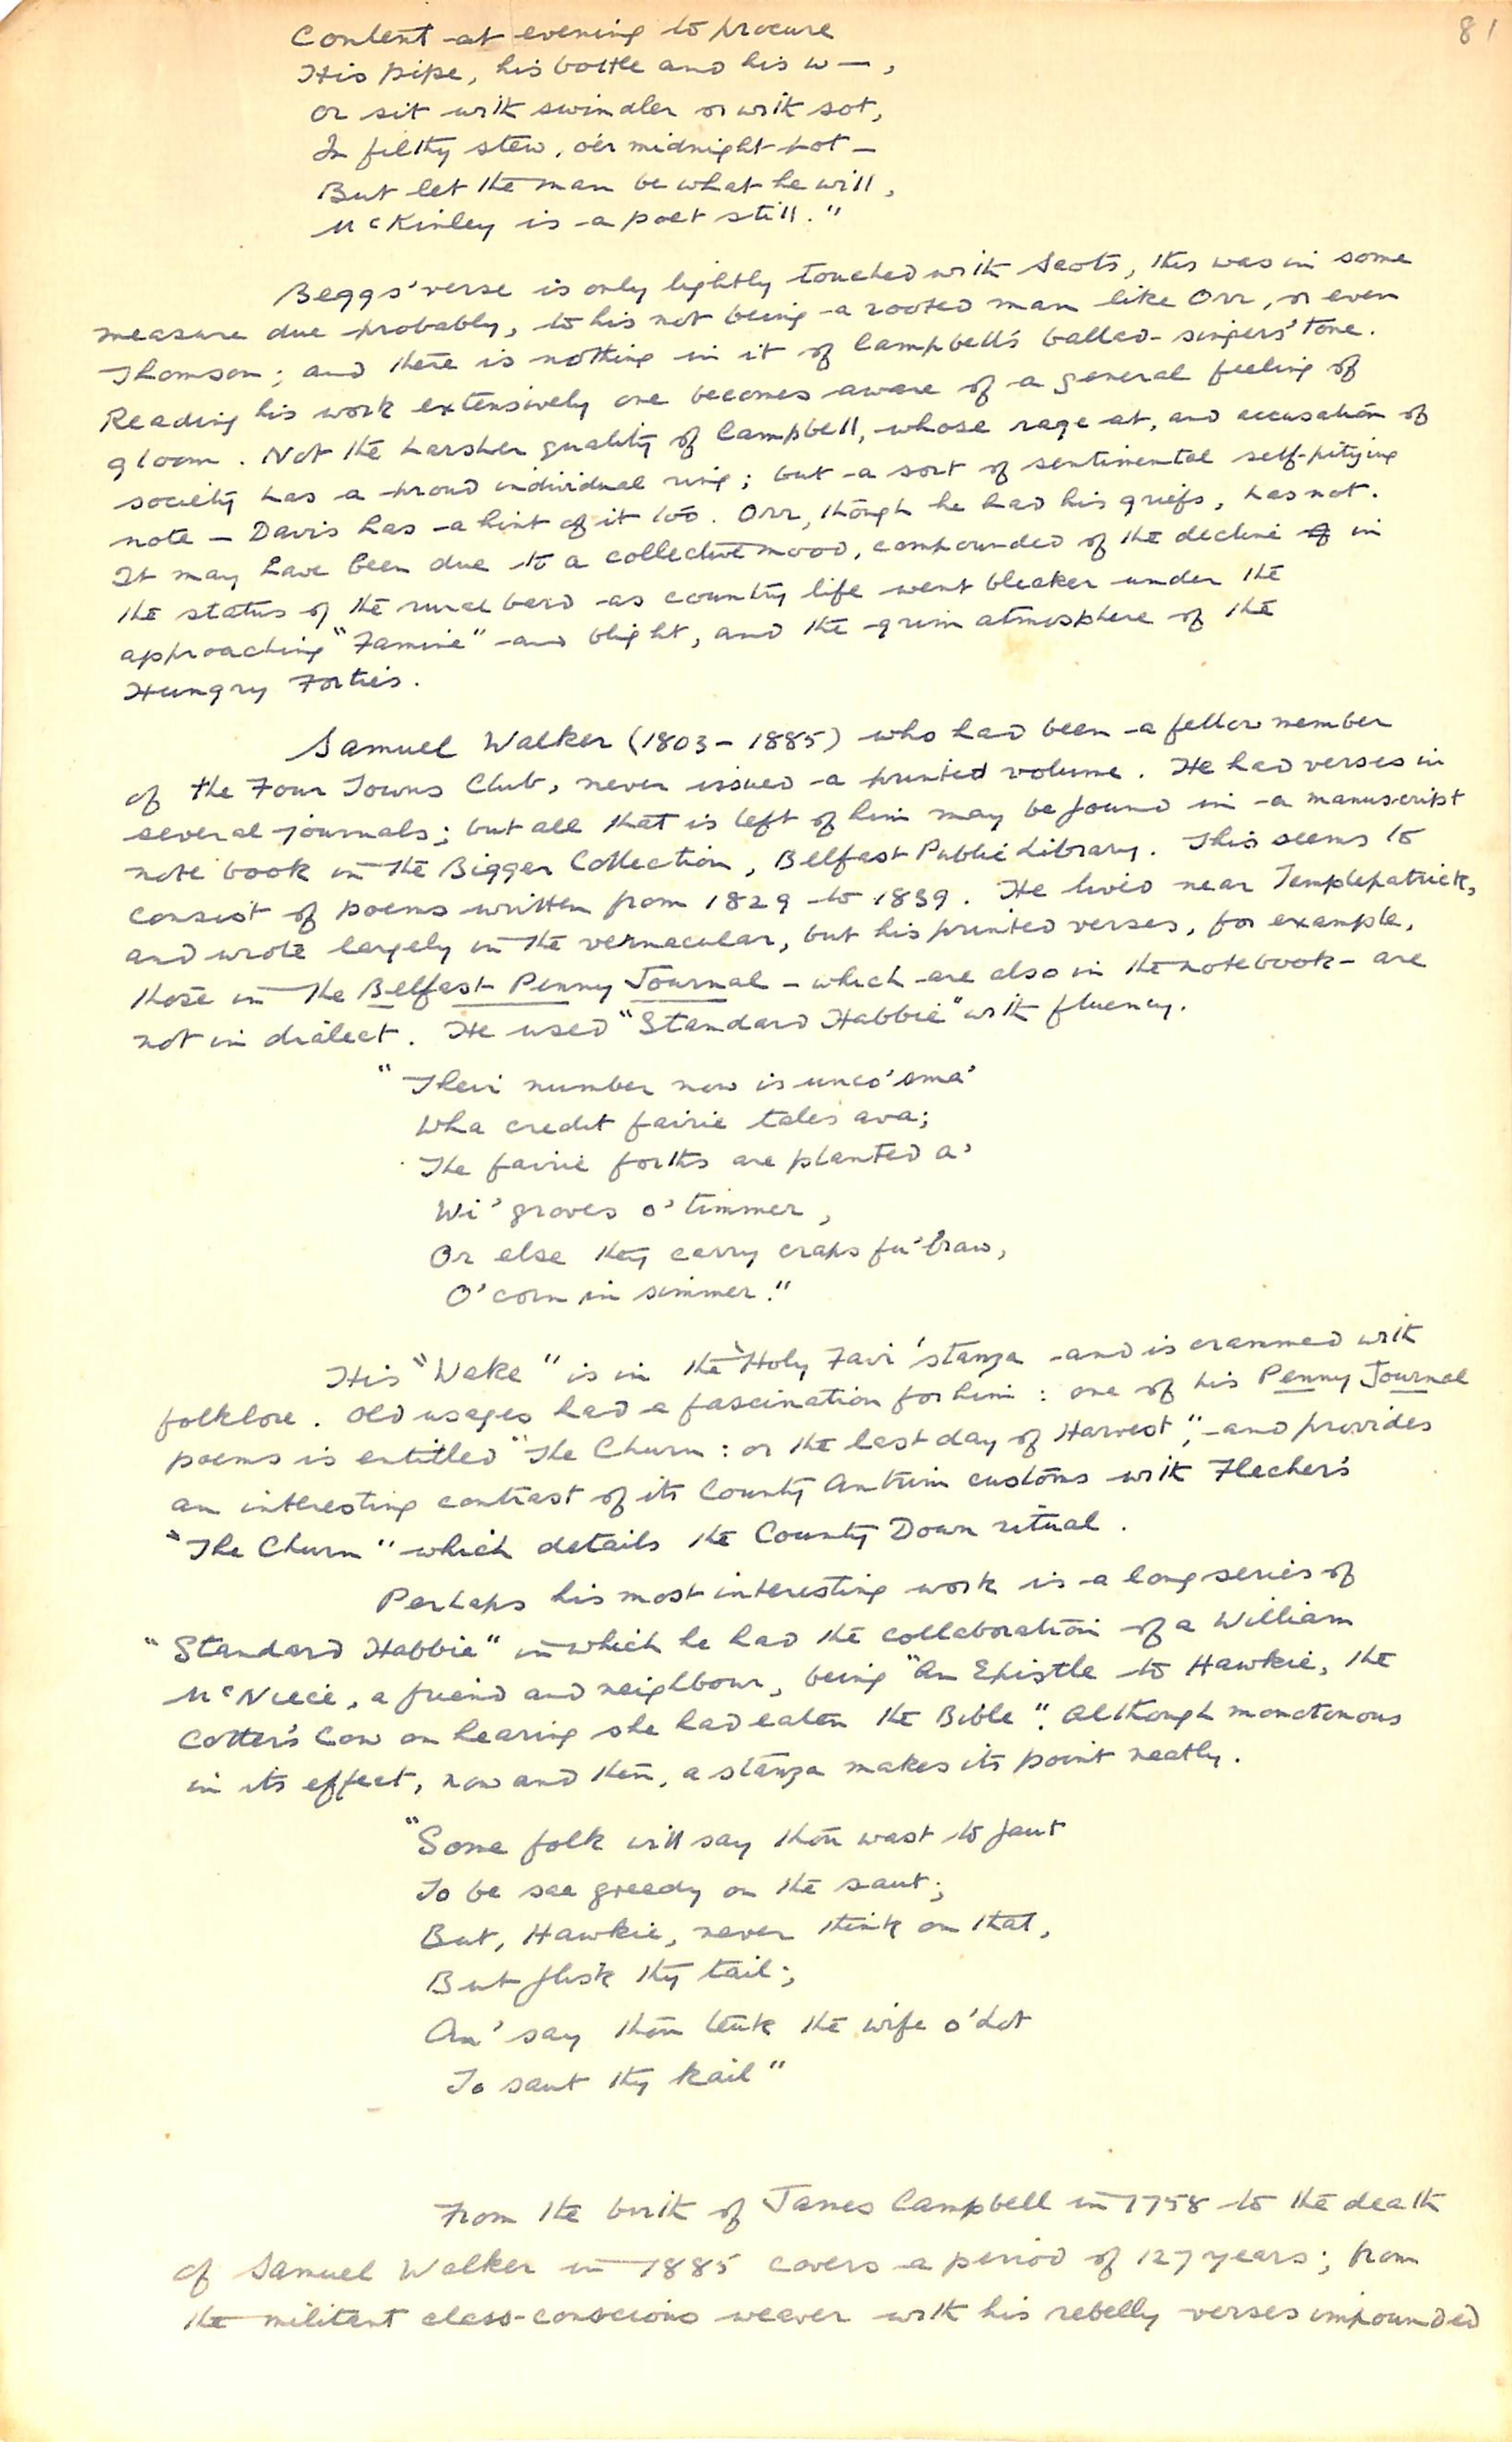 81
Content at evening to procure
His pipe, his bottle and his w—,
Or sit with swindler or with sot,
In filthy stew, o'er midnight pot —
But let the man be what he will,
McKinley is a poet still."
Beggs' verse is only lightly touched with Scots, this was in some
measure due probably, to his not being a rooted man like Orr, or even
Thomson; and there is nothing in it of Campbell's ballad-singers' tone.
Reading his work extensively one becomes aware of a general feeling of
gloom. Not the harsher quality of Campbell, whose rage at, and accusation of
society has a proud individual ring; but a sort of sentimental self-pitying
note — Davis has a hint of it too. Orr, though he had his griefs, has not.
It may have been due to a collective mood, compounded of the decline of in
the status of the rural bard as country life went bleaker under the
approaching "Famine" and blight, and the grim atmosphere of the
Hungry Forties.
Samuel Walker (1803-1885) who had been a fellow member
of the Four Towns Club, never issued a printed volume. He had verses in
several journals; but all that is left of him may be found in a manuscript
note book in the Bigger Collection, Belfast Public Library. This seems to
consist of poems written from 1829 to 1839. He lived near Templepatrick,
and wrote largely in the vernacular, but his printed verses, for example,
those in the Belfast Penny Journal - which are also in the notebook - are
not in dialect. He used "Standard Habbie" with fluency.
"Their number now is unco' sma'
Wha credit fairie tales ava;
The fairie forths are planted a'
Wi' groves o' timmer,
Or else they carry craps fu' braw,
O' corn in simmer."
His "Wake" is in the "Holy Fair' stanza and is crammed with
folklore. Old usages had a fascination for him: one of his Penny Journal
poems is entitled "The Churn: or the last day of Harvest", and provides
an interesting contrast of its County Antrim customs with Flecher's
"The Churn" which details the County Down ritual.
Perhaps his most interesting work is a long series of
"Standard Habbie" in which he had the collaboration of a William
McNeece, a friend and neighbour, being "An Epistle to Hawkie, the
Cotter's Cow on hearing she had eaten the Bible". Although monotonous
in its effect, now and then, a stanza makes its point neatly.
"Some folk will say thou wast to faut
To be sae greedy on the saut;
But, Hawkie, never think on that,
But flisk thy tail;
An' say thou teuk the wife o' Lot
To saut thy kail"
From the birth of James Campbell in 1758 to the death
of Samuel Walker in 1885 covers a period of 127 years; from
the militant class-conscious weaver with his rebelly verses impounded